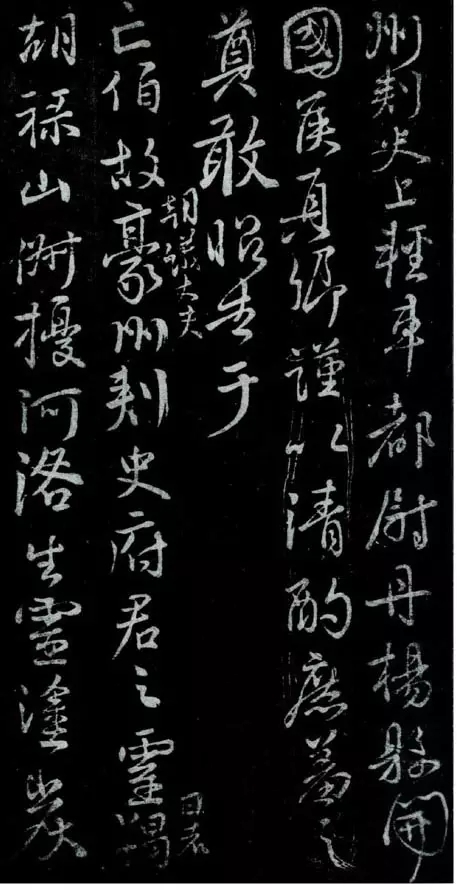 州刾史上輕車都尉丹楊縣開
國侯真卿謹以清酌庶羞之
奠敢昭告于
亡伯故朝議大夫豪州刾史府君之靈日者羯
胡祿山俶擾河洛生靈塗炭